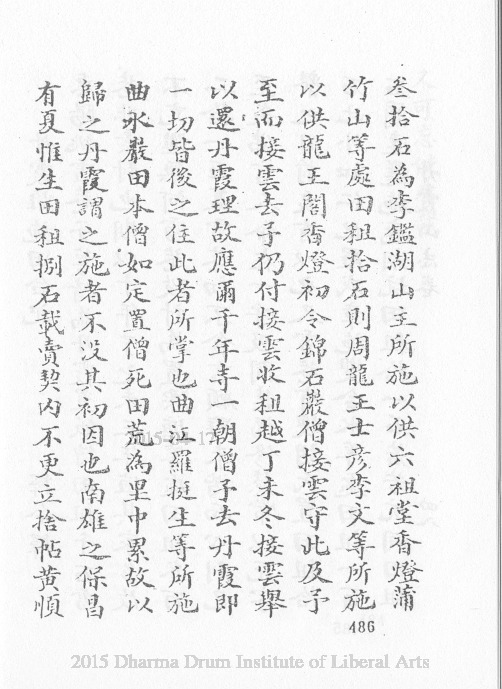 叁拾石為李鑑湖山主所施以供六祖堂香燈蒲
竹山等處田租拾石則周龍王士彦李文等所施
以供龍王閣香燈初令錦石巖僧接雲守此及予
至而接雲去予仍付接雲收租越丁未冬接雲舉
以還丹霞理故應爾千年寺一朝僧予去丹霞即
一切皆後之住此者所掌也曲江羅挺生等所施
曲水巖田本僧如定置僧死田荒為里中累故以
歸之丹霞謂之施者不没其初因也南雄之保昌
有夏惟生田租捌石載賣契内不更立捨帖黄順
486
2015 Dharma Drum Institute of Liberal Arts